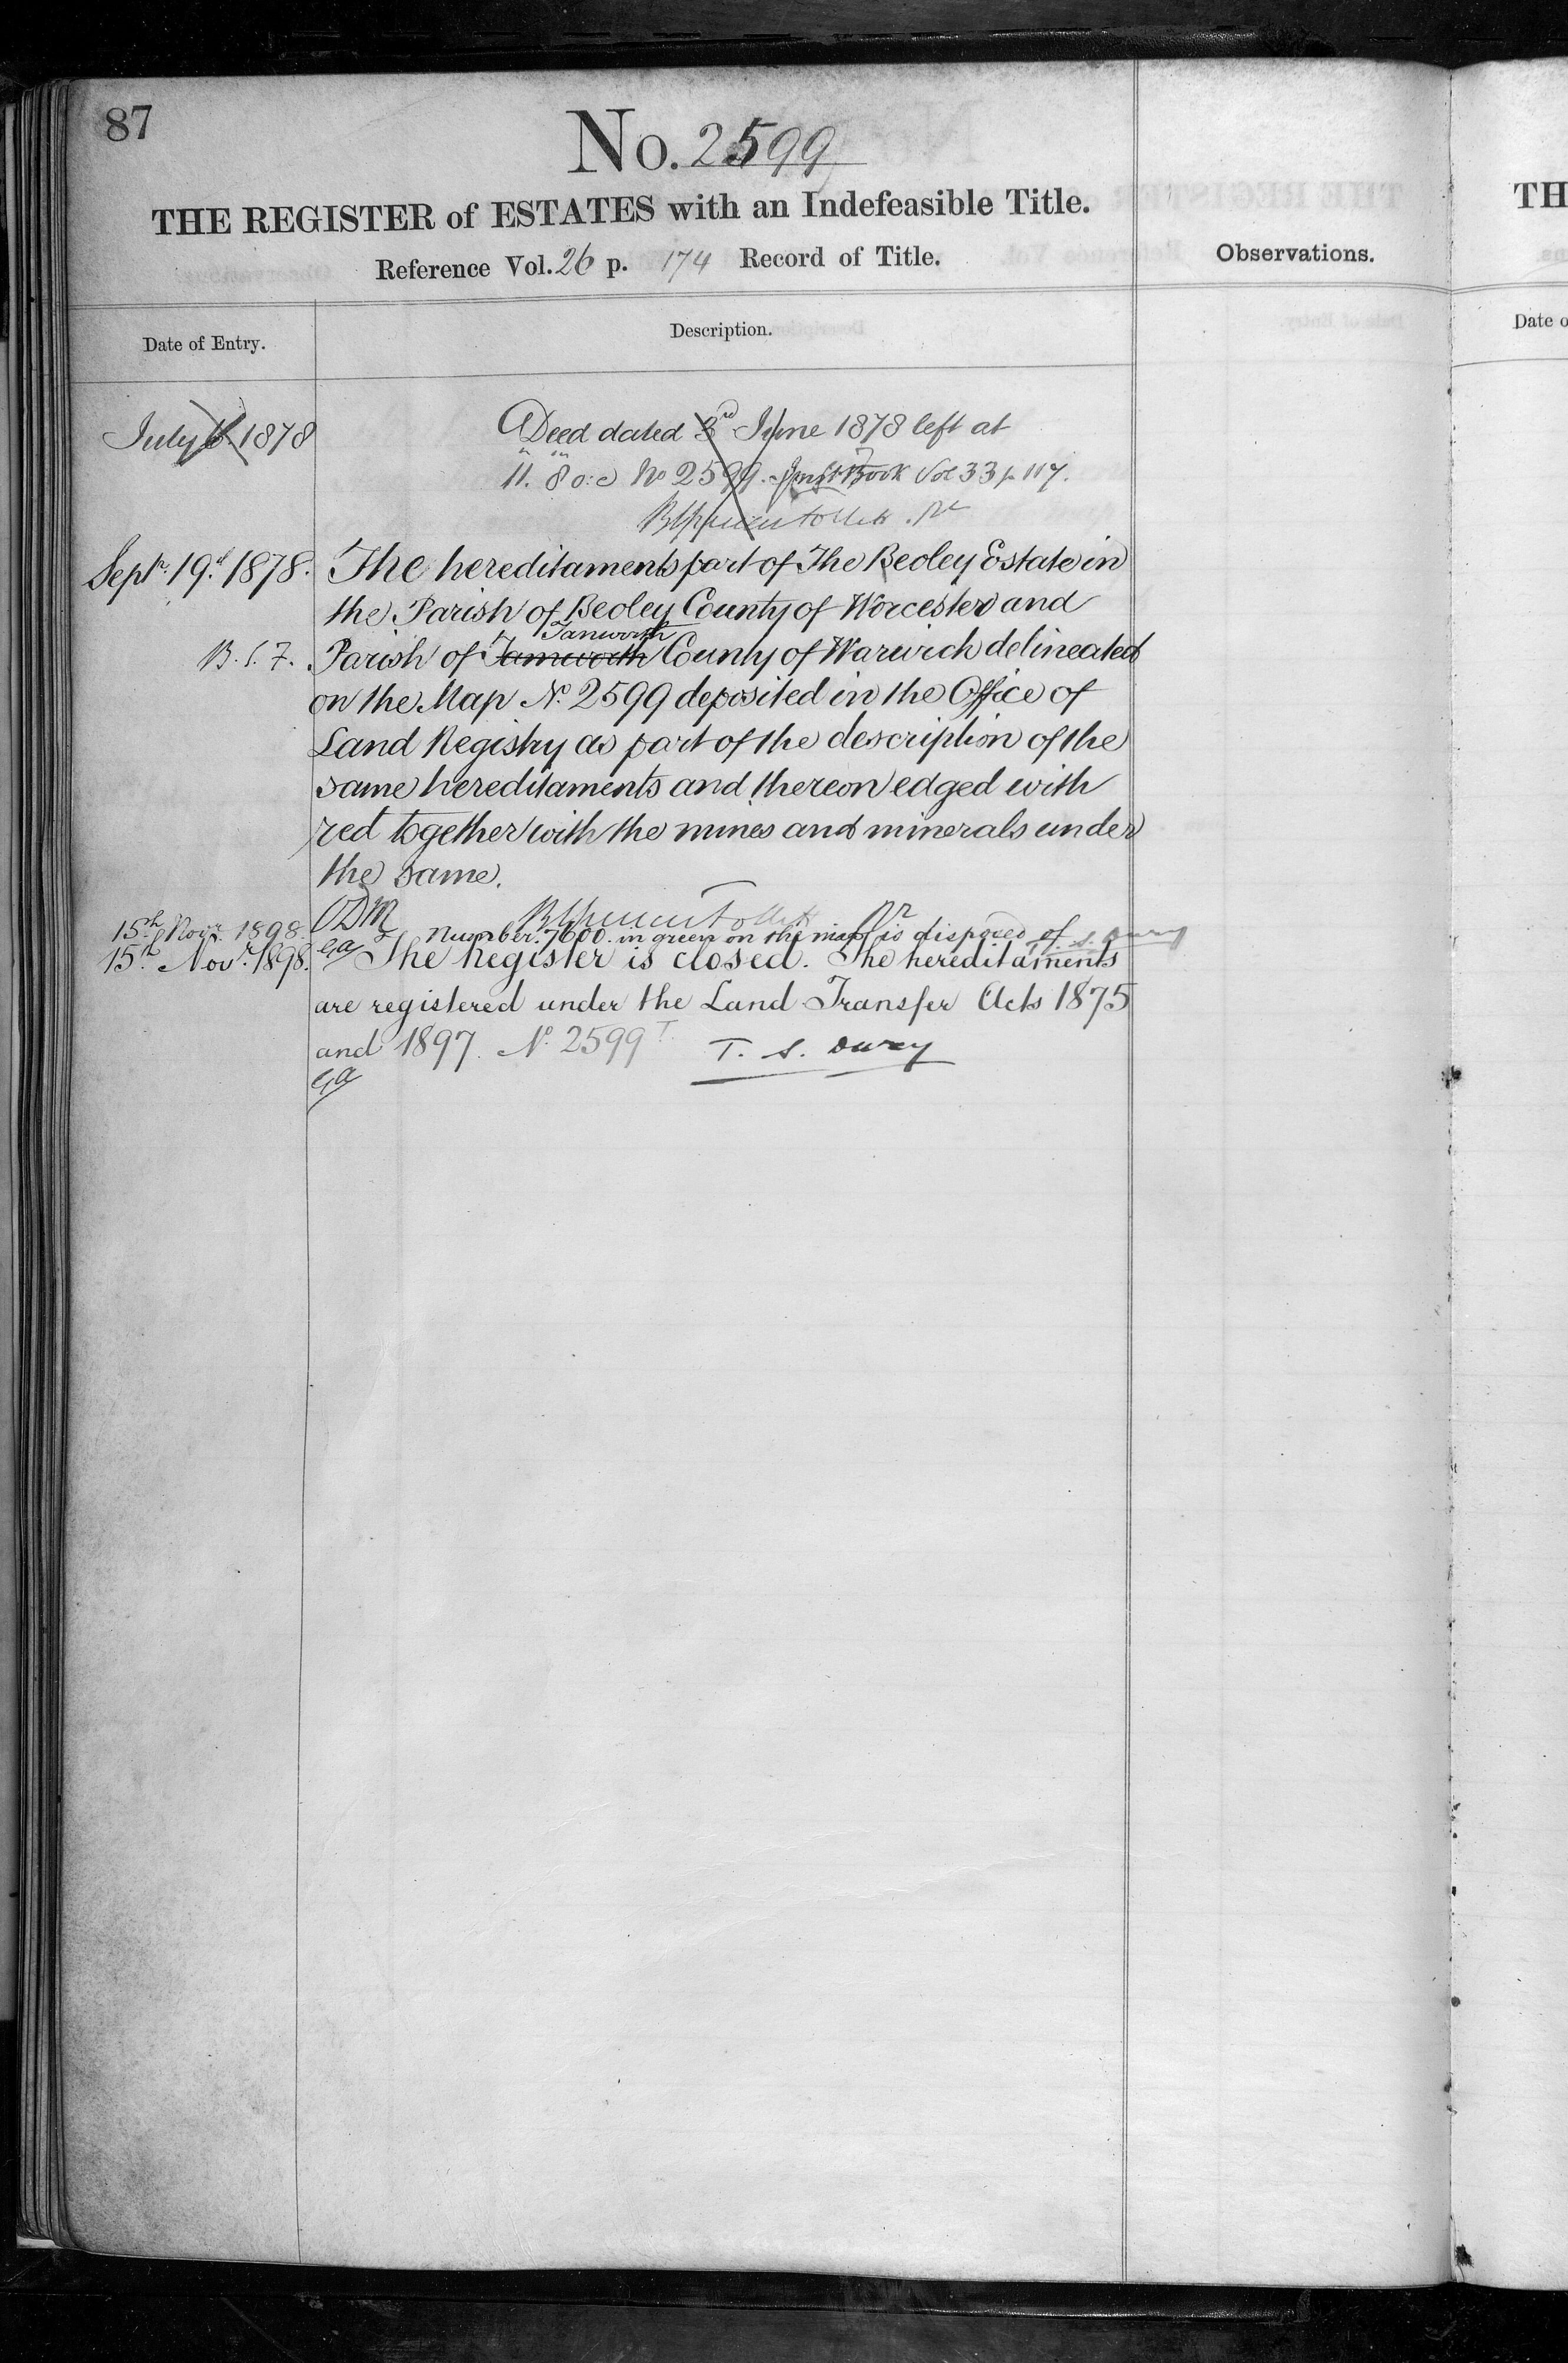 87
No. 2599
THE REGISTER of ESTATES with an Indefeasible Title.
Reference Vol. 26 p. 174 Record of Title.
Observations.
Date of Entry.
Description.
July 1878
Deed dated 3rd June 1878 left at
11. 8 o:c No 2599. Inst Book Vol 33 p 117.
Septr. 19th 1878.
The hereditaments part of The Beoley Estate in
the Parish of Beoley County of Worcester and
Tanworth
B. S. F. Parish of Tamworth County of Warwick delineated
on the Map No. 2599 deposited in the Office of
Land Registry as part of the description of the
same hereditaments and thereon edged with
red together with the mines and minerals under
the same.
15th Novr. 1898. Number 7600 in green on the map is disposed of T. S. Dury
15th Novr. 1898. The Register is closed. The hereditaments
are registered under the Land Transfer Acts 1875
and 1897. No. 2599 T. T. S. Dury
TH
Date o